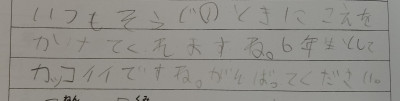 いつもそうじのときにこえを
かけてくれますね。6年生として
カッコイイですね。がんばってください。
ねん くみ